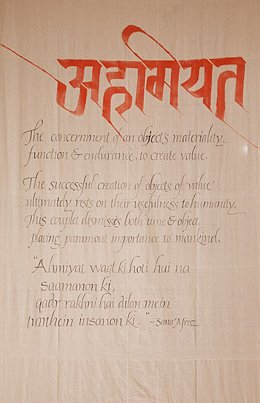 अहमियत
The concernment of an object's materiality,
function & endurance, to create value.
The successful creation of objects of value
ultimately rests on their usefulness to humanity.
This couplet dismisses both time & object
placing paramount importance to mankind.
"Ahmiyat waqt ki hoti hai na
saamanon ki,
qadr rakhni hai dilon mein
tumhein insanon ki."